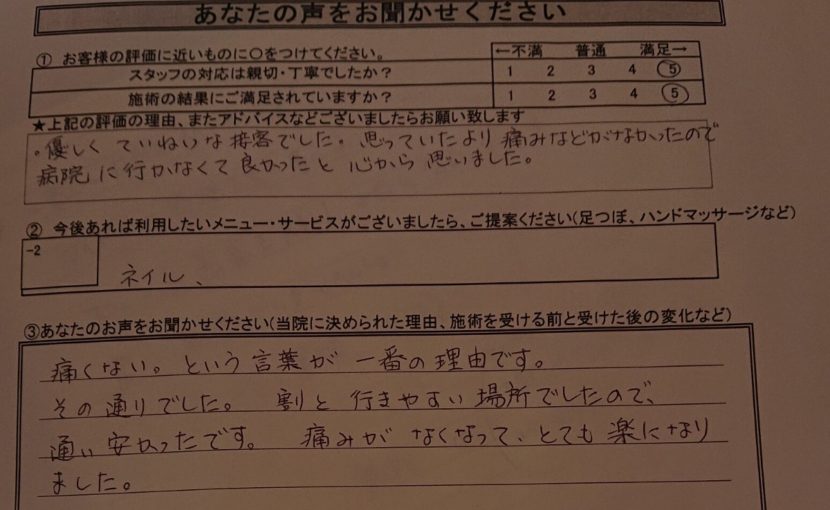 あなたの声をお聞かせください
① お客様の評価に近いものに〇をつけてください。
←不満 普通 満足→
スタッフの対応は親切・丁寧でしたか? 1 2 3 4 5
施術の結果にご満足されていますか? 1 2 3 4 5
★上記の評価の理由、またアドバイスなどございましたらお願い致します
・優しく ていねいな接客でした。思っていたより痛みなどがなかったので
病院に行かなくて良かったと心から思いました。
② 今後あれば利用したいメニュー・サービスがございましたら、ご提案ください(足つぼ、ハンドマッサージなど)
-2
ネイル、
③あなたのお声をお聞かせください(当院に決められた理由、施術を受ける前と受けた後の変化など)
痛くない。という言葉が一番の理由です。
その通りでした。 割と行きやすい場所でしたので、
通い安かったです。 痛みがなくなって、とても楽になり
ました。